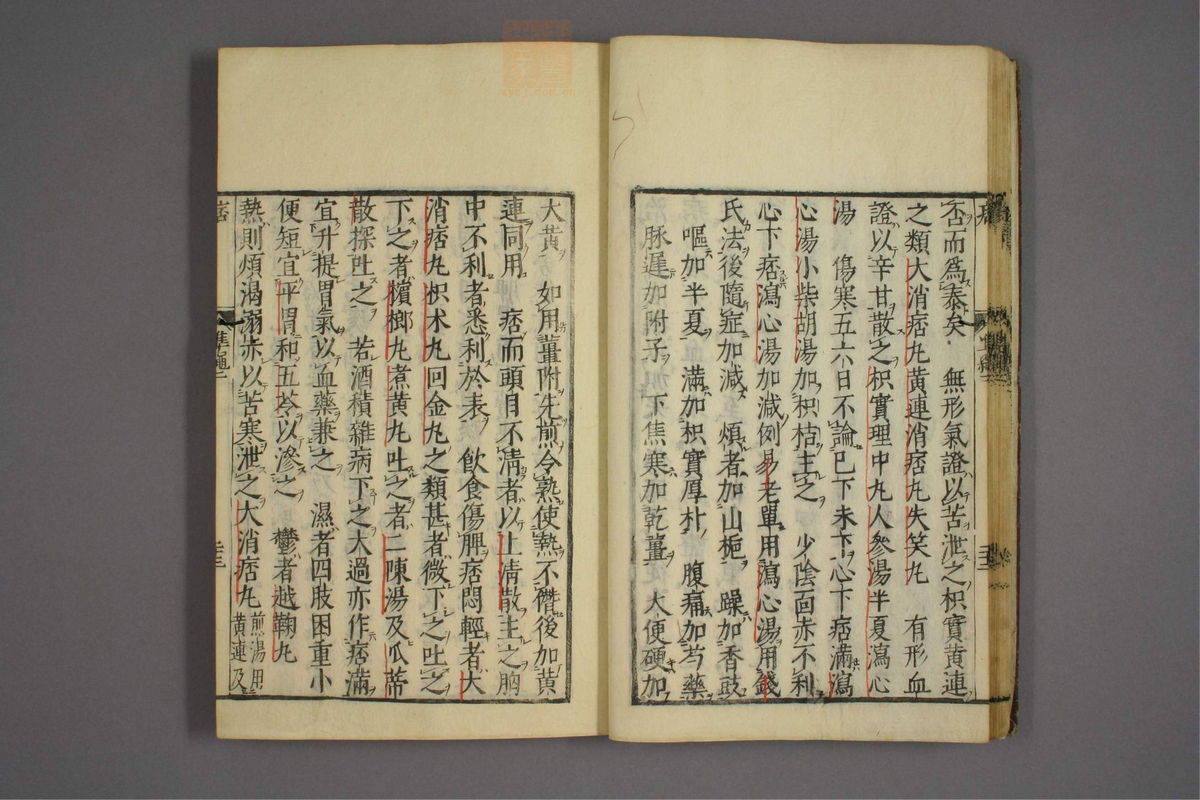 否而爲泰矣 無形氣證以苦泄之枳實黄連
之類大消痞丸黄連消痞丸失笑丸 有形血
證以辛甘散之枳實理中丸人參湯半夏瀉心
湯 傷寒五六日不論已下未下心下痞滿瀉
心湯小柴胡湯加枳桔主之 少陰面赤不利
心下痞瀉心湯加減例易老單用瀉心湯用錢
氏法後隨症加減 煩者加山梔 躁加香豉
嘔加半夏 滿加枳實厚朴 腹痛加芍藥
脉遲加附子 下焦寒加乾薑 大便硬加
大黄 如用薑附先煎令熟使熱不僭後加黄
連同用 痞而頭目不清者以上清散主之胸
中不利者悉利於表 飲食傷脾痞悶輕者大
消痞丸枳朮丸回金丸之類甚者微下之吐之
下之者檳榔丸煮黄丸吐之者二陳湯及瓜蒂
散探吐之 若酒積雜病下之大過亦作痞滿
宜升提胃氣以血藥兼之 濕者四肢困重小
便短宜平胃和五苓以滲之 鬱者越鞠丸
熱則煩渴溺赤以苦寒泄之大消痞丸煎湯用黄連及
痞
準繩